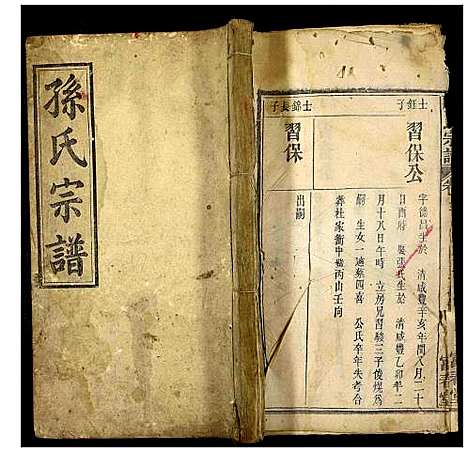 孫氏宗譜
宗譜卷
富春堂
士鈺子
習保公
字德昌生於 清咸豐辛亥年間八月二十
日酉時 娶張氏生於 清咸豐乙卯年二
月十八日午時 立房兄習駿三子俊槐為
嗣 生女一適蔡四喜 公氏卒年失考合
葬杜家衝中 丙山壬向
士錦長子
習保
出嗣